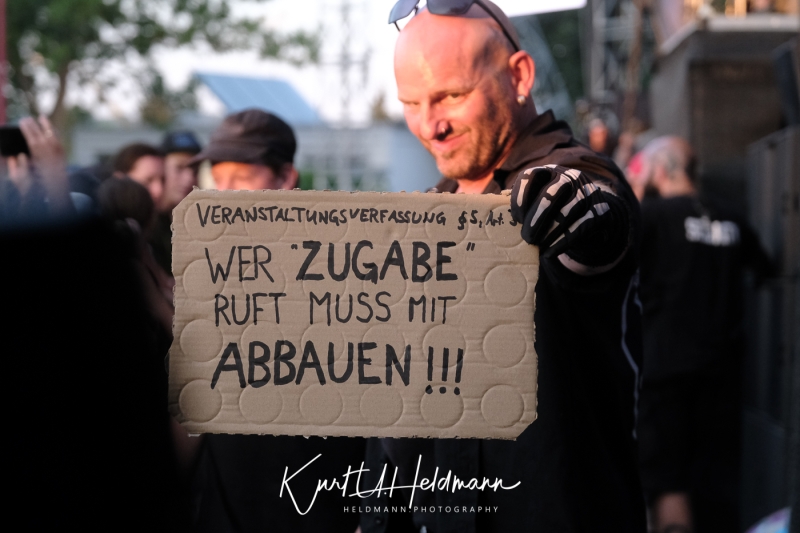 VERANSTALTUNGSVERFASSUNG § 5, Art. 3
WER "ZUGABE"
RUFT MUSS MIT
ABBAUEN !!!
Kurt A. Heldmann
HELDMANN.PHOTOGRAPHY